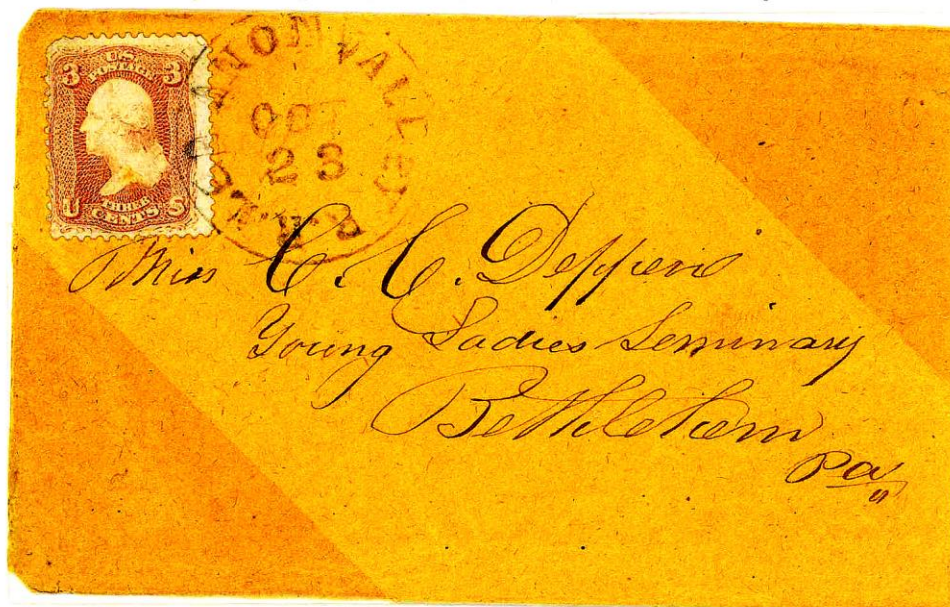 3 U.S. 3
POSTAGE
U THREE S
CENTS
ANON VALLEY
OCT
23
Miss C. C. Deppen
Young Ladies Seminary
Bethlehem
Pa